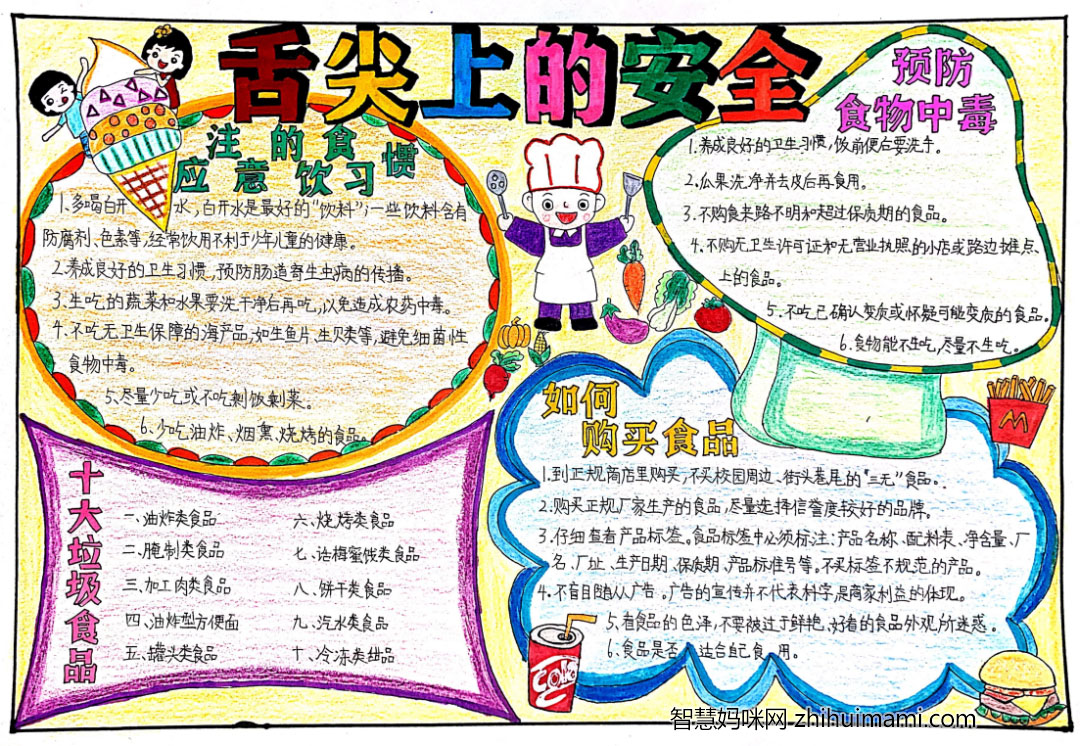 舌尖上的安全
注的食惯
应意饮习
1.多喝白开水,白开水是最好的“饮料”;一些饮料含有
防腐剂、色素等,经常饮用不利于少年儿童的健康。
2.养成良好的卫生习惯,预防肠道寄生虫病的传播。
3.生吃的蔬菜和水果要洗干净后再吃,以免造成农药中毒。
4.不吃无卫生保障的海产品,如生鱼片、生贝类等,避免细菌性
食物中毒。
5.尽量少吃或不吃剩饭剩菜。
6.少吃油炸、烟熏、烧烤的食品。
预防
食物中毒
1.养成良好的卫生习惯,饭前便后要洗手。
2.瓜果洗净并去皮后再食用。
3.不购食来路不明和超过保质期的食品。
4.不购无卫生许可证和无营业执照的小店或路边摊点
上的食品。
5.不吃已确认变质或怀疑可能变质的食品。
6.食物能不生吃,尽量不生吃。
十大垃圾食品
一、油炸类食品
二、腌制类食品
三、加工肉类食品
四、油炸型方便面
五、罐头类食品
六、烧烤类食品
七、话梅蜜饯类食品
八、饼干类食品
九、汽水类食品
十、冷冻类甜品
如何
购买食品
1.到正规商店里购买,不买校园周边、街头巷尾的“三无”食品。
2.购买正规厂家生产的食品,尽量选择信誉度较好的品牌。
3.仔细查看产品标签。食品标签中必须标注:产品名称、配料表、净含量、厂
名、厂址、生产日期、保质期、产品标准号等。不买标签不规范的产品。
4.不盲目随从广告。广告的宣传并不代表科学,是商家利益的体现。
5.看食品的色泽,不要被过于鲜艳、好看的食品外观所迷惑。
6.食品是否适合自己食用。
Coke
智慧妈咪网 zhihuimami.com